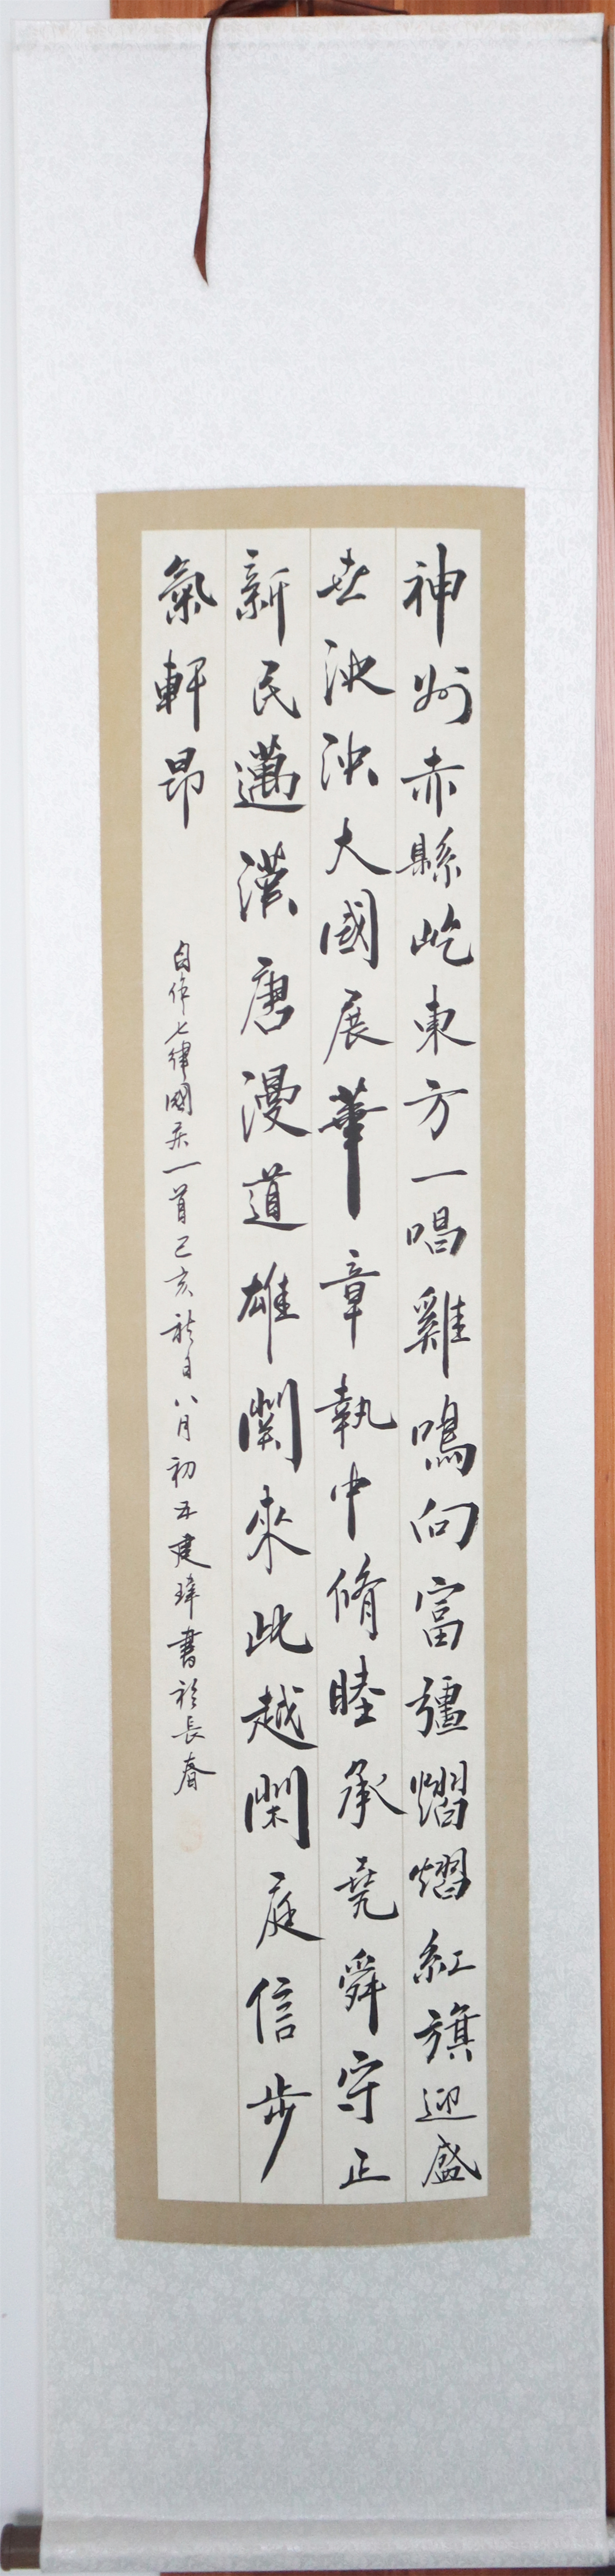 神州赤縣屹東方一唱雞鳴向富疆熠熠紅旗迎盛
世泱泱大國展華章執中脩睦承堯舜守正
新民邁漢唐漫道雄關來此越閑庭信步
氣軒昂
自作七律國慶一首己亥秋月八月初五建瑋書於長春